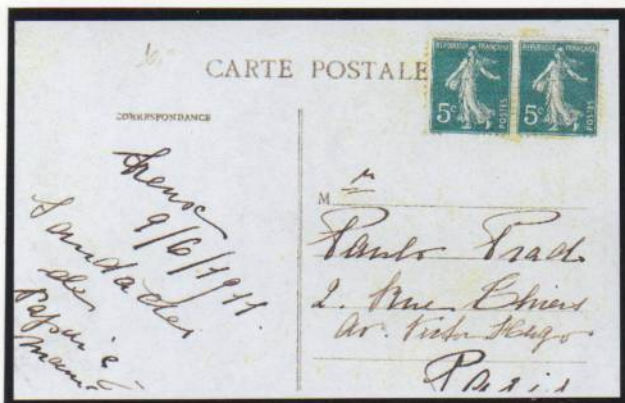 CARTE POSTALE
REPUBLIQUE FRANÇAISE
5c POSTES
REPUBLIQUE FRANÇAISE
5c POSTES
CORRESPONDANCE
9/6/1911.
Saudades
de
Papai e
Mamã
M r
Paulo Prado
2. Rue Thiers
Av. Victor Hugo
Paris